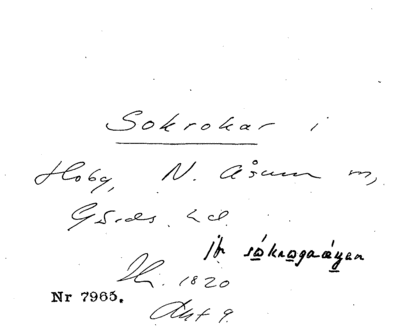 Sokrokar i
Hoby, N. Åsum m,
Gärds hd.
jfr sókrogaáyen
1820
Nr 7965.
Akt 9